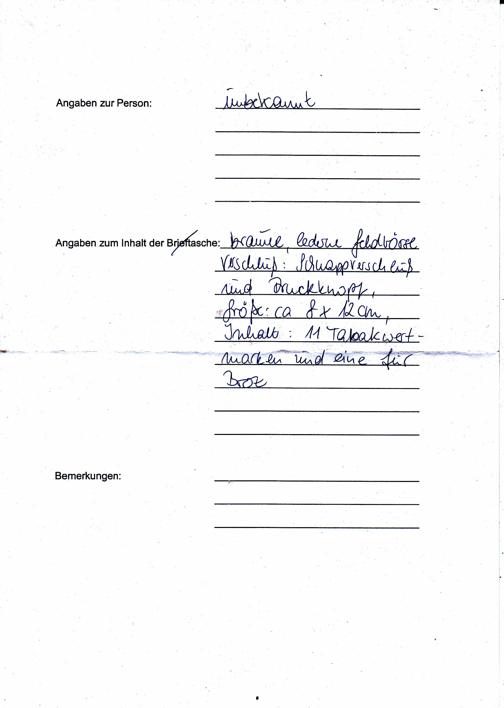 Angaben zur Person: unbekannt
Angaben zum Inhalt der Brieftasche: braune, lederne Geldbörse
Verschluß: Schnappverschluß
und Druckknopf,
Größe: ca 8 x 12 cm,
Inhalt: 11 Tabakwert-
marken und eine für
Brot
Bemerkungen: